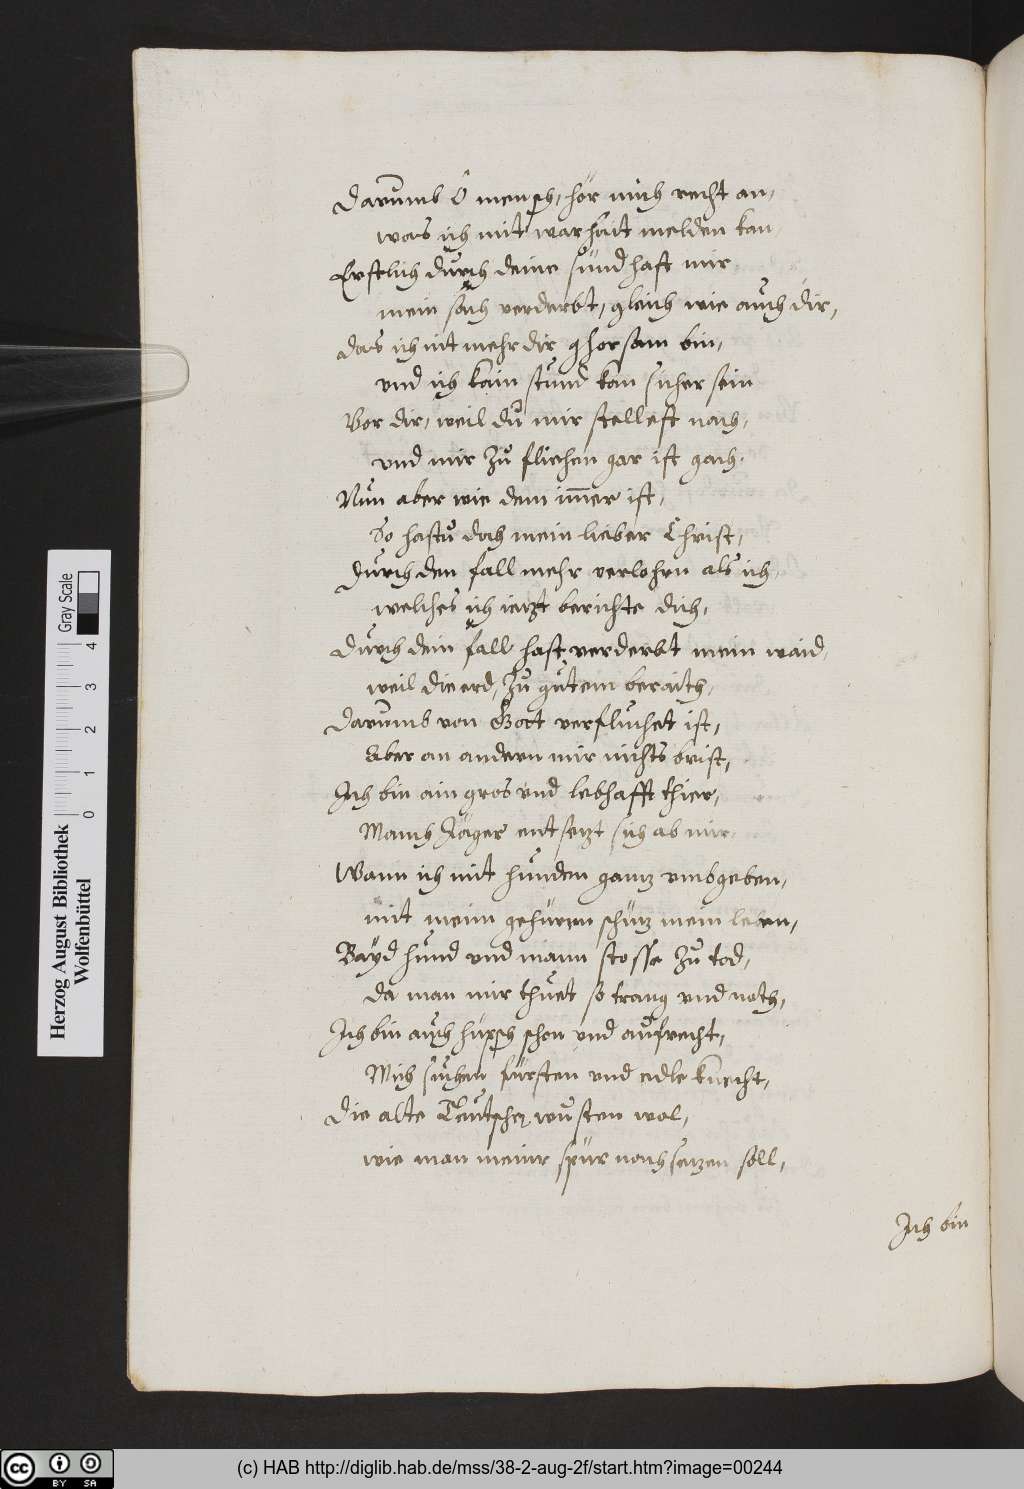 Darumb O mensch, hör mich recht an,
was ich mit warhait melden kan
Erstlich durch deine sünd haft mir
mein sach verderbt, gleich wie auch dir,
das ich nit mehr dir ghorsam bin,
vnd ich kain stund kan sicher sein
Vor dir, weil du mir stellest nach,
vnd mir zu fliehen gar ist gach.
Nun aber wie dem im̅er ist,
So hastu doch mein lieber Christ,
durch den fall mehr verlohrn als ich,
welches ich ietzt berichte dich,
durch dein fall hast verderbt mein waid,
weil die erd, zu gutem beraith,
darumb von Gott verfluchet ist,
Aber an andern mir nichts brist,
Ich bin ain gros vnd lebhafft thier,
Manch Jäger entsetzt sich ab mir,
Wann ich mit hunden gantz vmbgeben,
mit meim gehürn schütz mein leben,
Bayd hund vnd mann stosse zu tod,
da man mir thuet so trang vnd noth,
Ich bin auch hüpsch schon vnd aufrecht,
Mich suchen fürsten vnd edle knecht,
die alte Teutschen wusten wol,
wie man meiner spür nachsetzen soll,
Ich bin
Herzog August Bibliothek
Wolfenbüttel
0 1 2 3 4
Gray Scale
cc BY SA
(c) HAB http://diglib.hab.de/mss/38-2-aug-2f/start.htm?image=00244